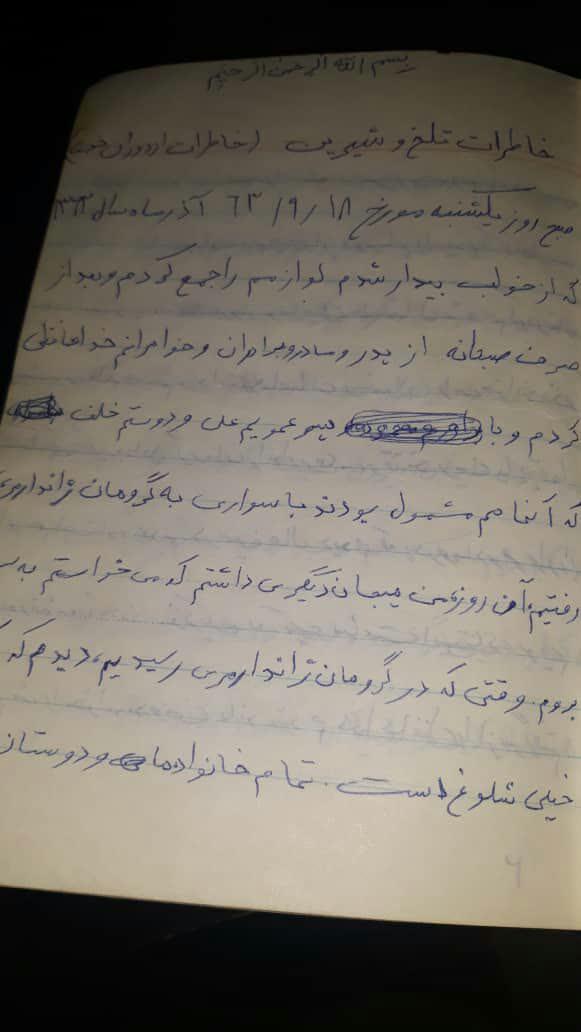 بسم الله الرحمن الرحیم
خاطرات تلخ و شیرین (خاطرات از دوران
صبح روز یکشنبه مورخ ۶۳/۹/۱۸ آذر ماه سال
که از خواب بیدار شدم لوازمم را جمع کردم و بعد از
صرف صبحانه از پدر و مادر و برادران و خواهرانم خداحافظی
کردم و با پسر عمویم علی و دوستم خلف
که آنها هم مشمول بودند با سواری به گروهان ژاندارمری
رفتیم، آن روز من هیجان دیگری داشتم که می خواستم به
بروم. وقتی که در گروهان ژاندارمری رسیدیم، دیدم که
خیلی شلوغ است. تمام خانواده ها و دوستان